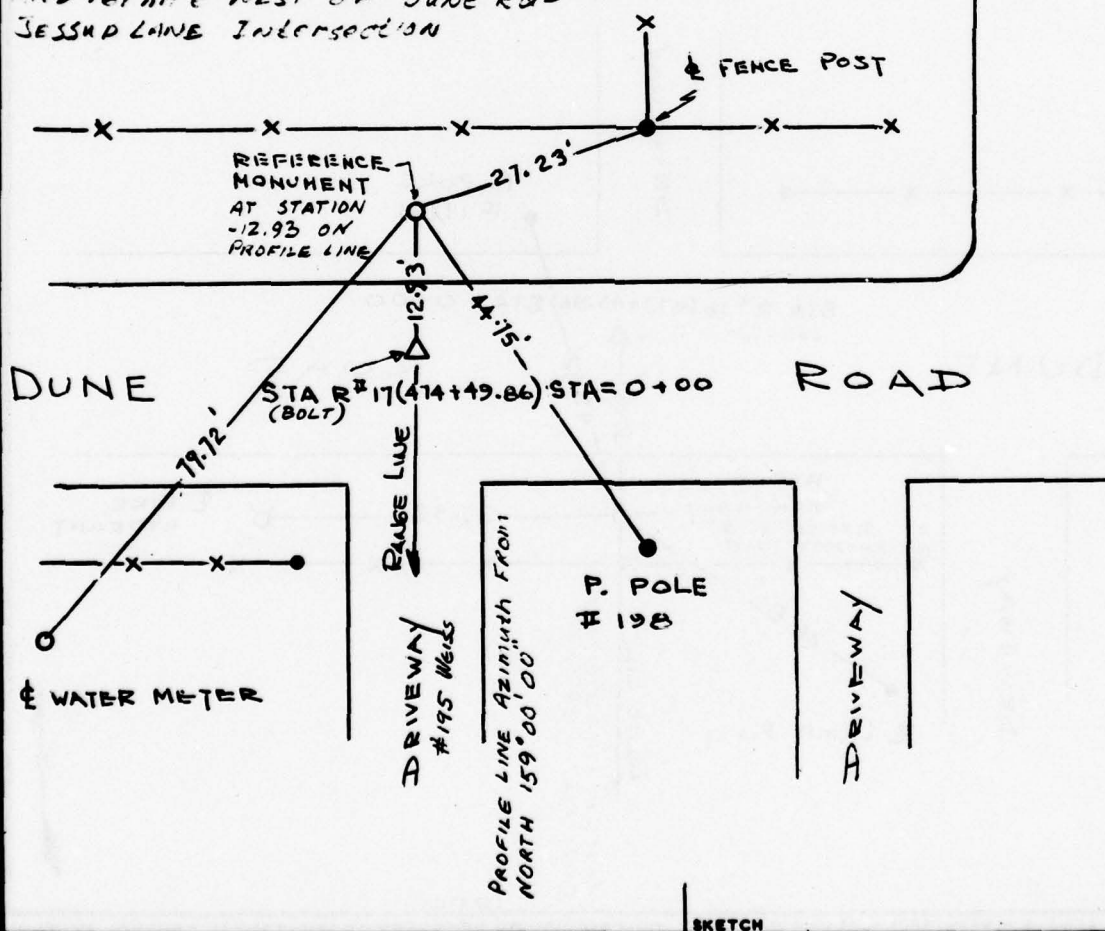 WEST OF DUNE RD-
JESSUP LANE Intersection
℄ FENCE POST
REFERENCE
MONUMENT
AT STATION
-12.93 ON
PROFILE LINE
27.23'
12.93'
79.72'
DUNE ROAD
STA R#17(474+49.86) STA=0+00
(BOLT)
RANGE LINE
℄ WATER METER
P. POLE
# 198
DRIVEWAY
#195 WEISS
PROFILE LINE Azimuth From
NORTH 159°00'00"
DRIVEWAY
SKETCH